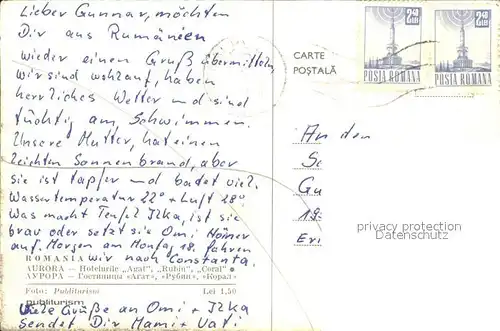 Lieber Gunnar, möchten
Dir aus Rumänien
wieder einen Gruß übermitteln,
wir sind wohlauf, haben
herrliches Wetter und sind
tüchtig am Schwimmen.
Unsere Mutter, hat einen
leichten Sonnenbrand, aber
sie ist tapfer und badet viel.
Wassertemperatur 22° + Luft 28°.
Was macht Teufel Ilka, ist sie
brav oder setzt sie Omi Hörner
auf. Morgen am Montag 18. fahren
wir nach Constanta.
ROMANIA
AURORA — Hotelurile „Agat", „Rubin", „Coral" ●
АУРОРА — Гостиницы «Агат», «Рубин», «Корал»
Foto: Publiturism Lei 1,50
publiturism
Viele Grüße an Omi + Ilka
sendet Dir Mami + Vati.
CARTE
POȘTALĂ
2,40 LEI
POSTA ROMANA
2,40 LEI
POSTA ROMANA
An den
Sc
Gu
18
Eri
privacy protection
Datenschutz